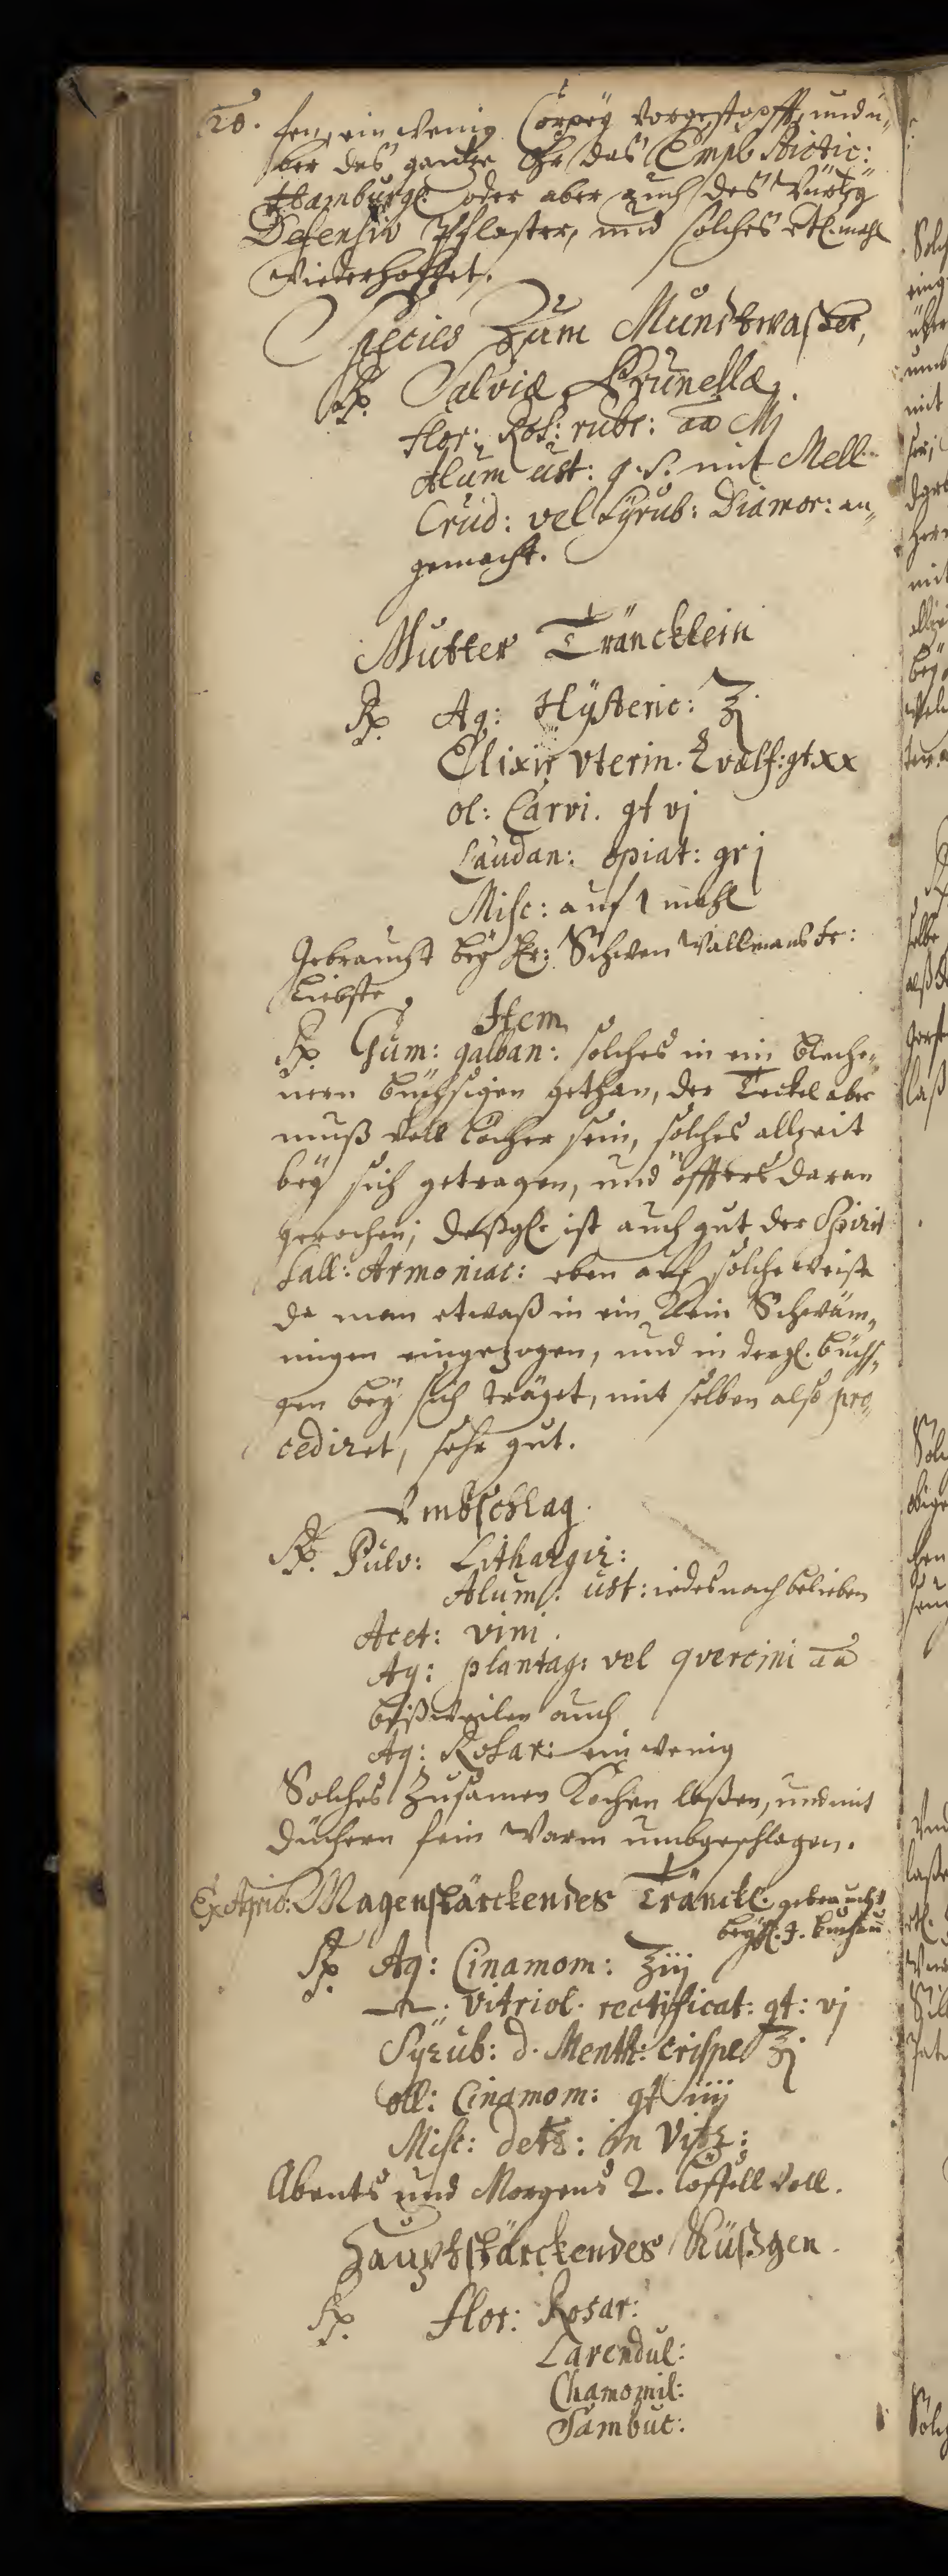 20. sen, ein wenig Corpey vorgestopfft, und ü-
ber das gantze Ohr das Empl. Dictic:
Hamburg: oder aber auch des Würtzg
Defensiv Pflaster, und solches etl. mahl
wiederhollet.
Species Zum Mundtwaßer,
Rp. Salviæ, Prunellæ,
flor: Ros: rubr: aa Mj
Alum ust: q. s. mit Mell.
Crud: vel Syrub: Diamor: an-
gemacht.
Mutter Träncklein
Rp Aq: Hÿsteric: ℥j
Elixir Vterin. Zvælf: gt xx
ol: Carvi. gt vj
Laudan: opiat: gr j
Misc: auf 1 mahl
Gebraucht beÿ Hr: Schwen Vallmans Fr:
Liebste.
Item
Rp. Gum: galban: solches in ein bleche-
nern büchsigen gethan, der Teckel aber
muß voll löcher sein, solches allzeit
beÿ sich getragen, und öffters daran
gerochen; deßgl. ist auch gut der Spirit
Sall: Armoniac: eben auf solche weise
da man etwaß in ein klein Schwäm-
migen eingezogen, und in dergl. büchs-
gen beÿ sich träget, mit selben also pro-
cediret, sehr gut.
Vmbschlag.
Rp. Pulv: Lithargir:
Alum: ust: iedes nach belieben
Acet: vini.
Aq: plantag: vel quercini aa
bißweilen auch
Aq: Rosar: ein wenig
Solches Zusamen Kochen laßen, und mit
Düchern fein warm umbgeschlagen.
Magenstärckendes Tränckl. gebraucht
beÿ
Rp Aq: Cinamom: ℥iij
Vitriol. rectificat: gt: vj
Syrub: d. Menth: crispe ℥j
oll: Cinamom: gt iiij
Misc: detr: in Vitr:
Abents und Morgens 2. löffell voll.
Hauptstärckendes Küßgen.
Rp. flor: Rosar:
Lavendul:
Chamomil:
Sambuc: